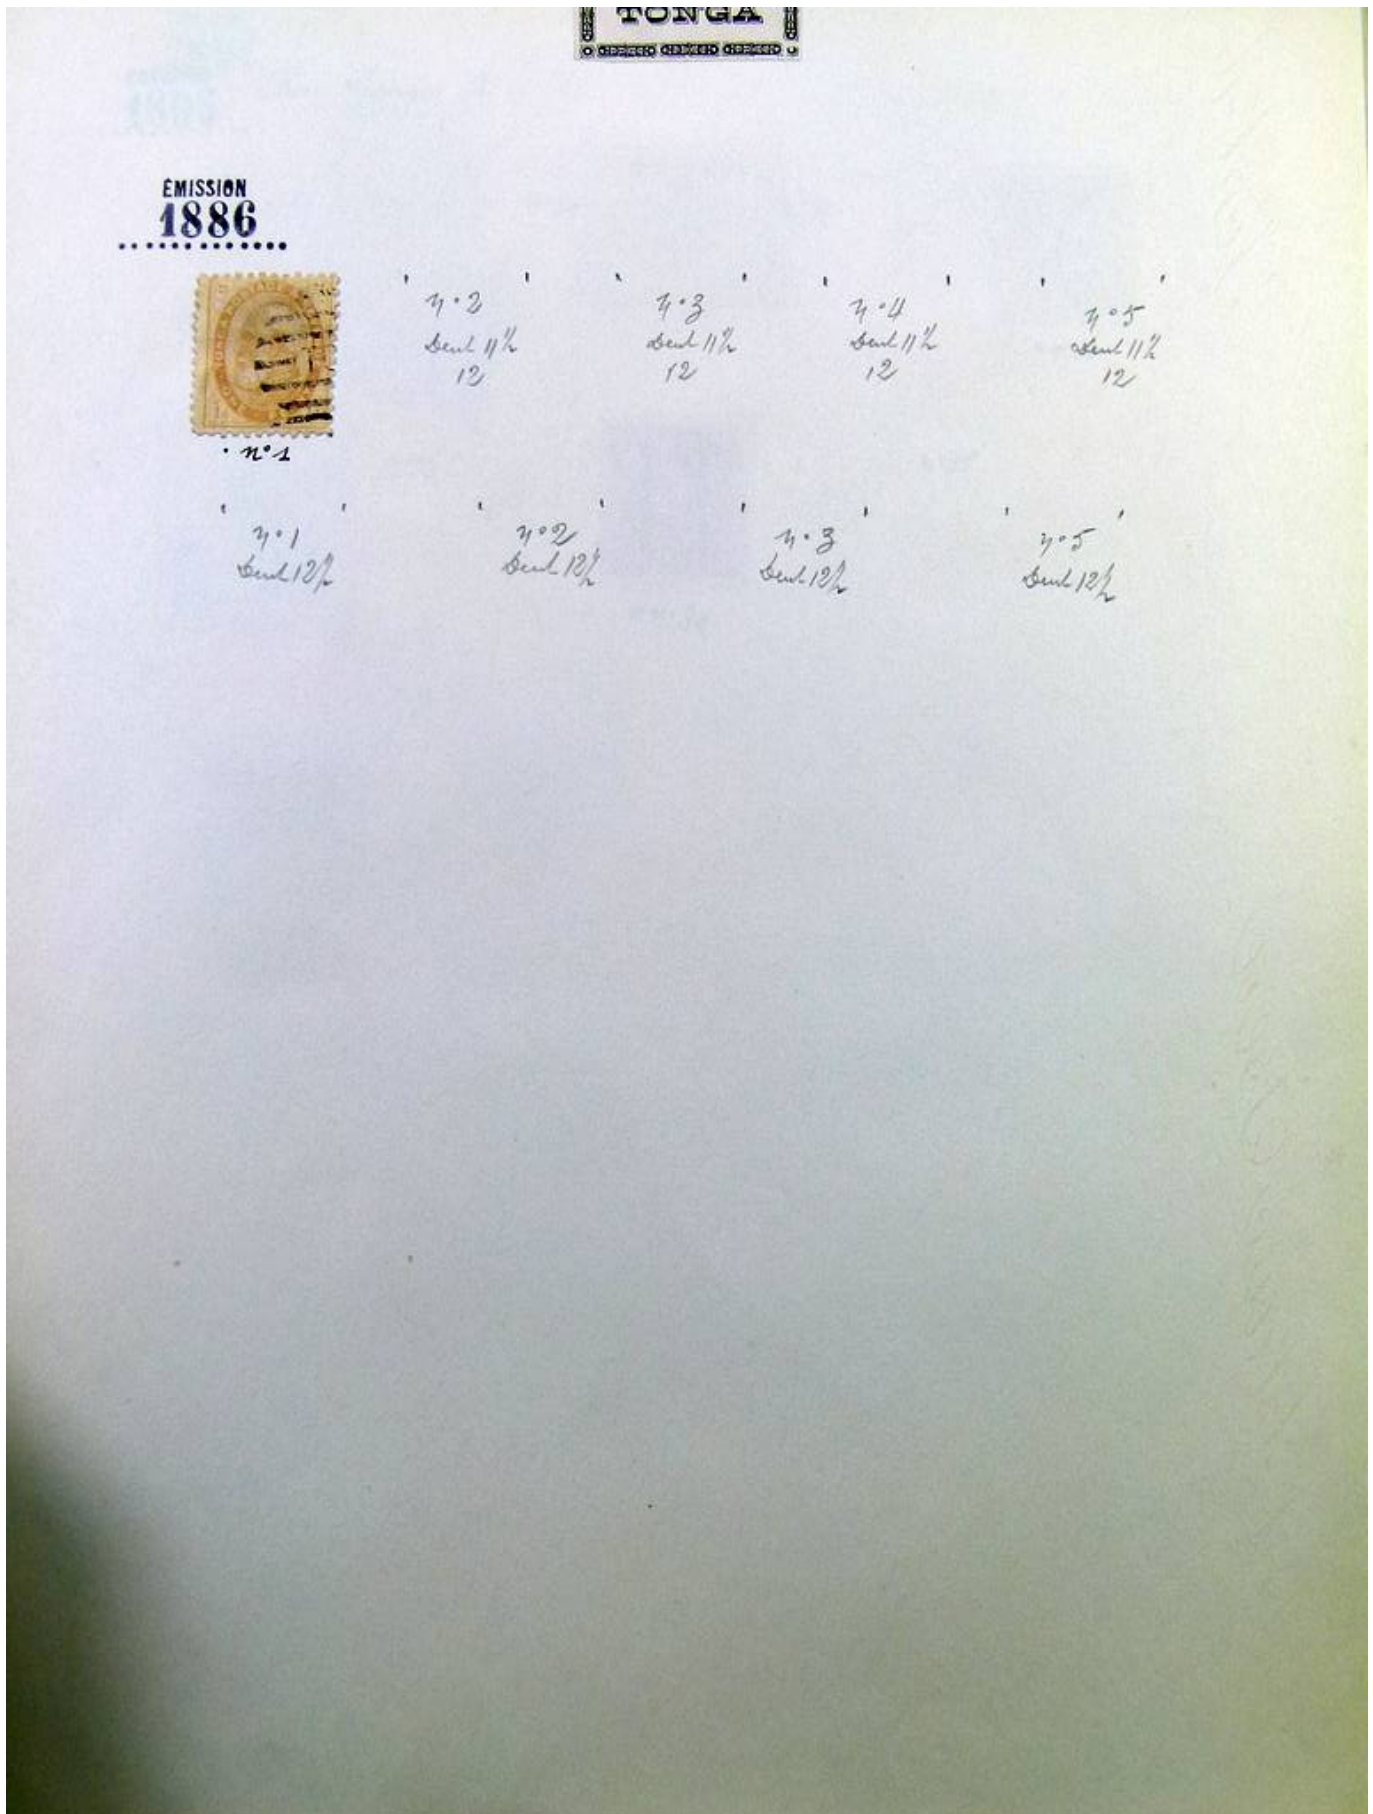 TONGA
ÉMISSION
1886
n°2
Dent 11 1/2
12
n°3
Dent 11 1/2
12
n°4
Dent 11 1/2
12
n°5
Dent 11 1/2
12
n°1
n°1
Dent 12 1/2
n°2
Dent 12 1/2
n°3
Dent 12 1/2
n°5
Dent 12 1/2